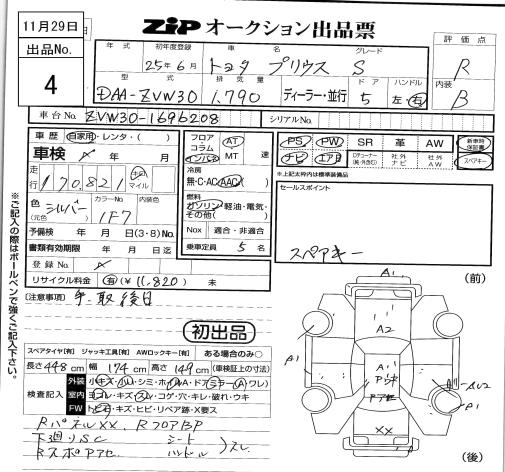 11月29日
出品No.
4
ZIP オークション出品票
年式 初年度登録 車名 グレード
25年6月 トヨタ プリウス S
型式 排気量 ドア ハンドル
DAA-ZVW30 1,790 ディーラー・並行 5 左・右
評価点
R
内装
B
車台No. ZVW30-1696208 シリアルNo.
車歴 自家用・レンタ・( )
車検 年 月
走行 170,821 km マイル
色(元色) シルバー カラーNo. 1F7 内装色
予備検 年 月 日(3・8)No.
書類有効期限 年 月 日迄
登録No.
リサイクル料金 有(¥11,820) 未
フロア コラム インパネ AT MT 速
冷房 無・C・AC・AAC
燃料 ガソリン・軽油・電気・その他( )
Nox 適合・非適合
乗車定員 5 名
PS PW SR 革 AW 新車時保証書
ナビ エアB 社外ナビ 社外AW スペアキー
※上記太枠内は標準装備品
セールスポイント
スペアキー
※ご記入の際はボールペンで強くご記入下さい。
[注意事項]
初出品
スペアタイヤ[有] ジャッキ工具[有] AWロックキー[有] ある場合のみ○
長さ 448cm 幅 174cm 高さ 149cm (車検証上の寸法)
検査記入
外装 小キズ・
室内 ヨゴレ・キズ・スレ・コゲ・穴・キレ・破れ・ウキ
FW トビ石・キズ・ヒビ・リペア跡・X要ス
RパネルXX、RフロアBP
下廻りSC シート ハンドル スレ
(前)
A1
A2
A1
A1
A1
XX
(後)